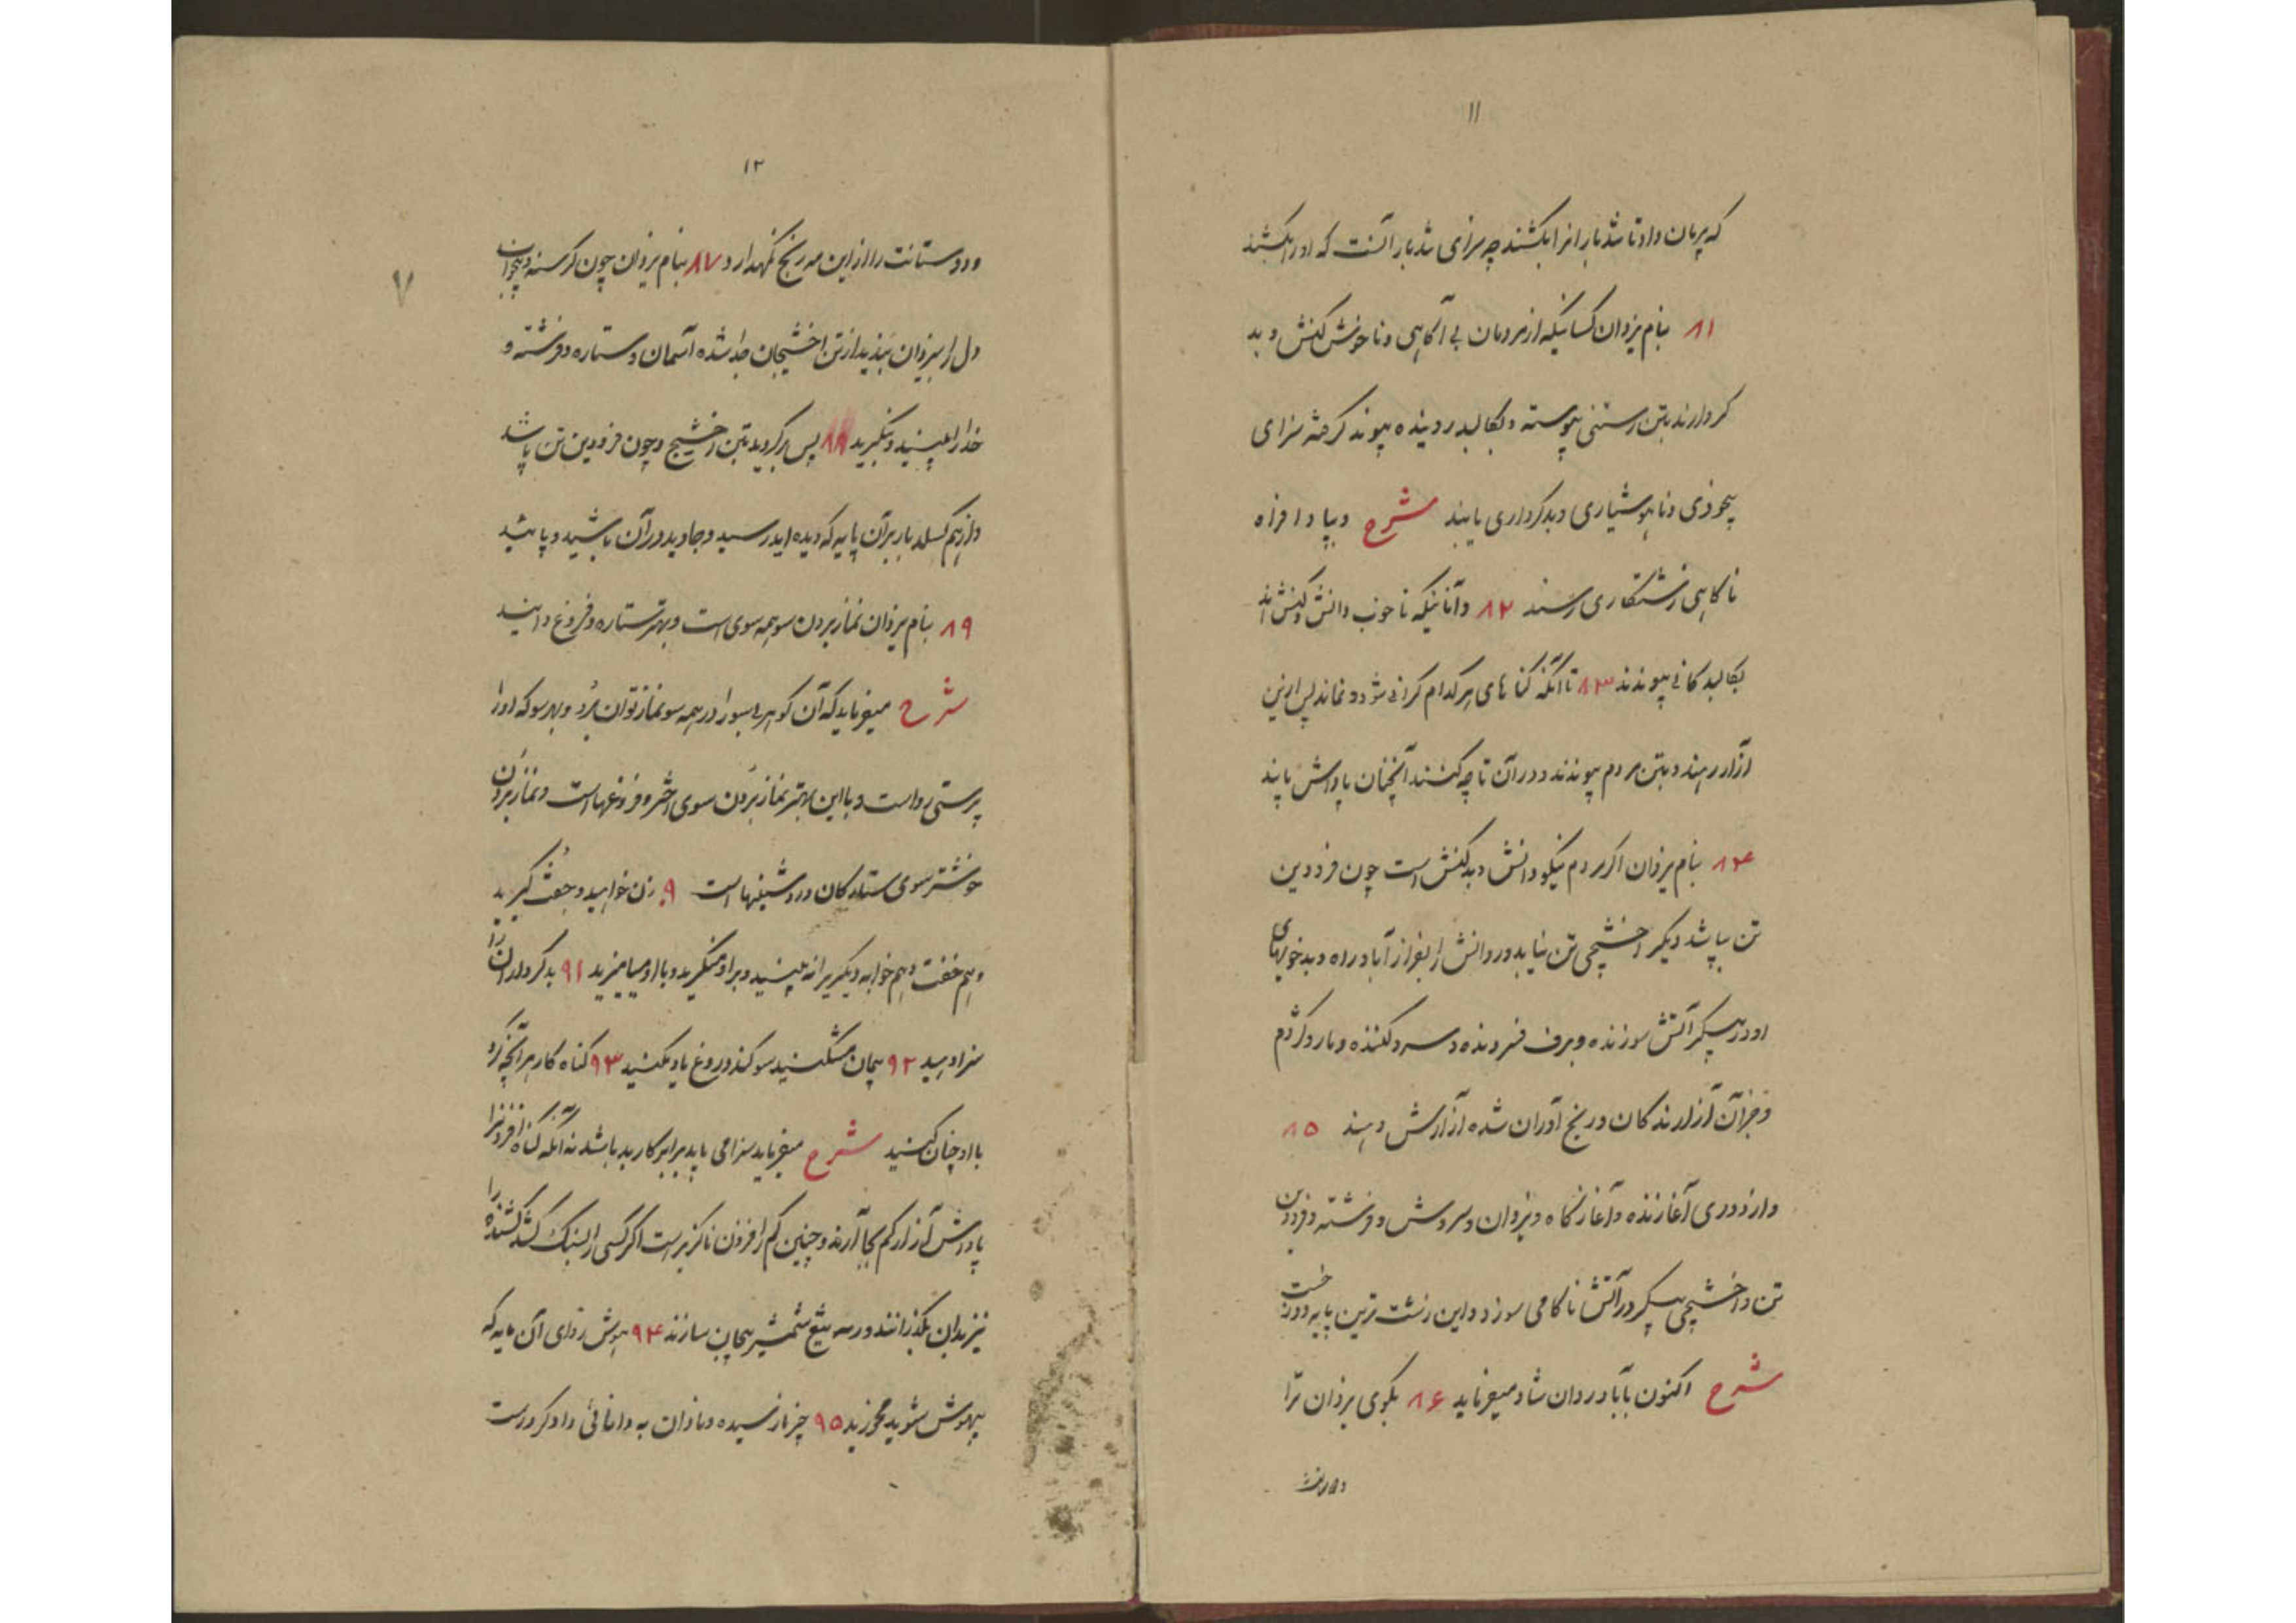 ۱۱
که پرمان داد تا شد بار انرا بکشند چه سزای شد بار آنست که او را بکشند
۸۱ بنام یزدان کسانیکه از مردمان بی آگاهی و ناخوش کنش و بد
کردارند بتن رستنی پیوسته و بکالبد روینده پیوند گرفته سزای
بیخردی و ناهوشیاری و بدکرداری یابند شرح و پاد افراه
ناگاهی زشتکاری رسند ۸۲ و آنانیکه ناخوب دانش و کنش اند
بکالبد کانی پیوندند ۸۳ تا آنکه گناهای هر کدام کرانی شود و نماند پس ازین
آزار رهند و بتن مردم پیوندند و در آن تا چه کنند آنچنان پاداش یابند
۸۴ بنام یزدان اگر مردم نیکو دانش و بدکنش است چون فرودین
تن بپاشد دیگر اخشیجی تن نیابد و روانش را بفراز آباد راه و بدخویهای
او در پیکر آتش سوزنده و برف فسرونده و سرد کننده و مار و کژدم
و جز آن آزارندگان و رنج آوران شده آزارش دهند ۸۵
و از دوری آغازنده و آغازگاه و یزدان و سروش و فرشته و فرودین
تن و اخشیجی پیکر در آتش ناکامی سوزد و این زشت ترین پایه دوزخست
شرح اکنون بآباد روان شاد میفرماید ۸۶ بگوی یزدان ترا
و دوستانت
۱۲
و دوستانت را از این مه رنج نگهدارد ۸۷ بنام یزدان چون گرسنه و بیخواب
دل را بیزدان بندید از تن اخشیجان جدا شده آسمان و ستاره و فرشته و
خدا را ببینید و بنگرید ۸۸ پس برگردید بتن اخشیج و چون فرودین تن پاشد
و از هم گسلد بار بر آن پایه که دیده اید رسید و جاوید در آن باشید و پائید
۸۹ بنام یزدان نماز بردن سو همه سوی است و بهتر ستاره و فروغ دانید
شرح میفرماید که آن گوهر بی سو را در همه سو نماز توان برد و بهر سو که او را
پرستی رواست و با این بهتر نماز بردن سوی اختر و فروغها است و نماز بردن
خوشتر سوی ستارگان و روشنیها است ۹۰ زن خواهید و جفت گیرید
و هم خفت و هم خوابه دیگریرا نه بینید و بر او منگرید و با او میامیزید ۹۱ بدکرداران را
سزا دهید ۹۲ پیمان مشکنید سوگند دروغ یاد مکنید ۹۳ گناه کار هر آنچه کرد
با او چنان کنید شرح میفرماید سزا می باید برابر کار بد باشد نه آنکه گناه افزونرا
پاداش آزار کم بجا آرند و چنین کم را فزون ناگزیر است اگر کسی را بسنگ کشد کشنده را
نیز بدان بگذرانند و رسه تیغ شمشیر بیجان سازند ۹۴ هوش زدای آن مایه که
بیهوش شوید مخورید ۹۵ چیز نارسیده و نادان به دانائی دادگر درست